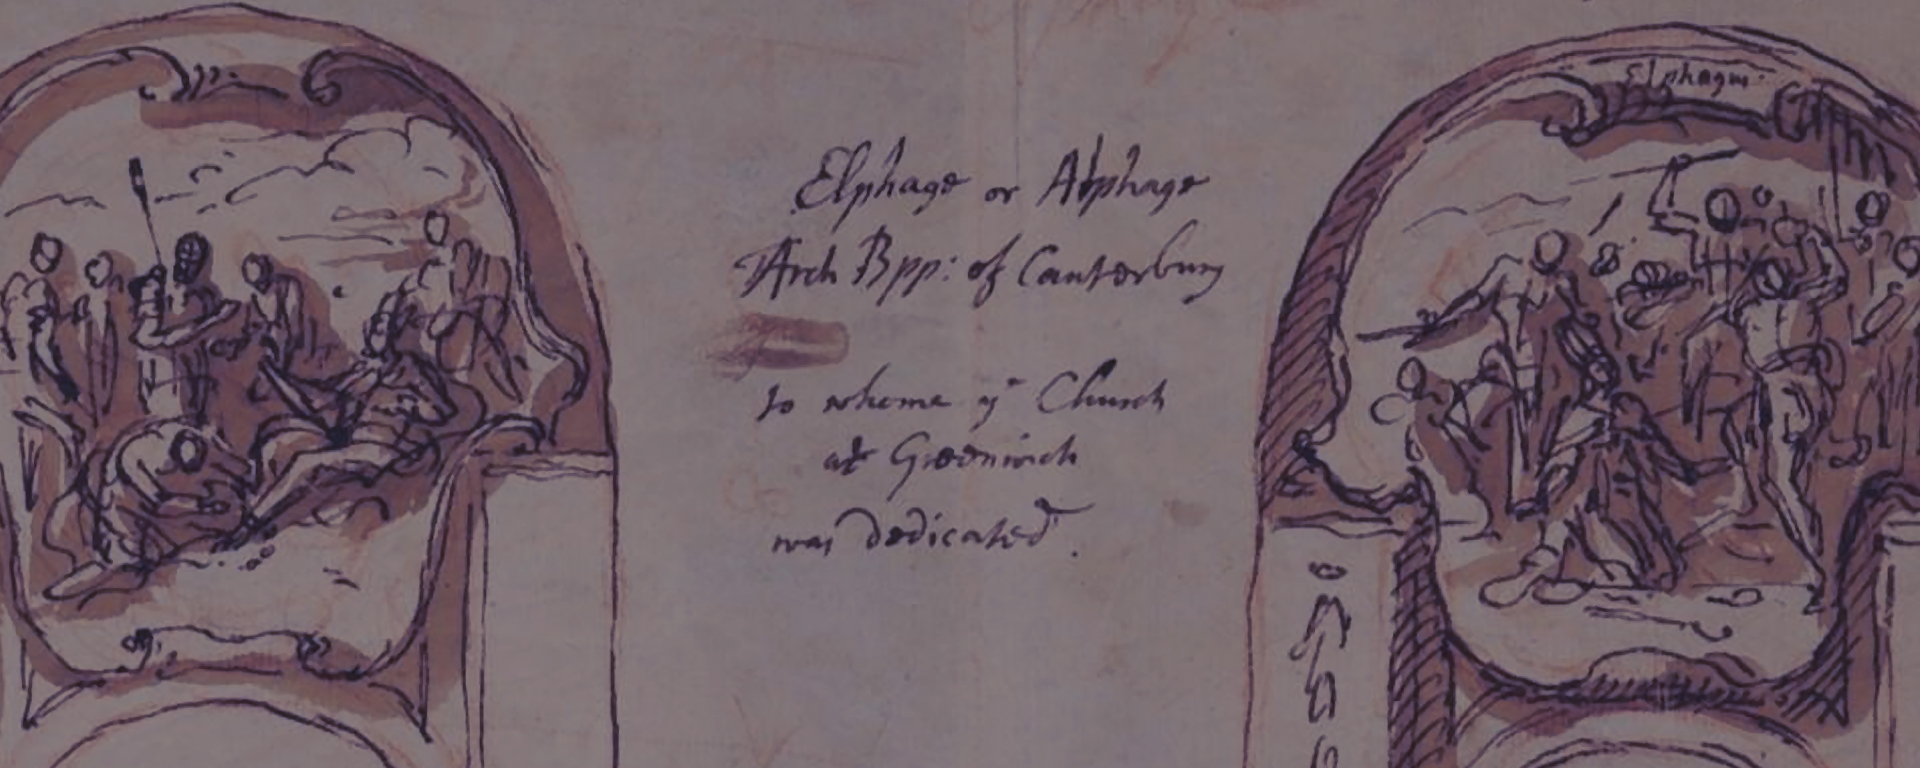 Elphagm
Elphage or Alphage
Arch Bpp: of Canterbury
to whome yͤ Church
at Greenwich
was dedicated.